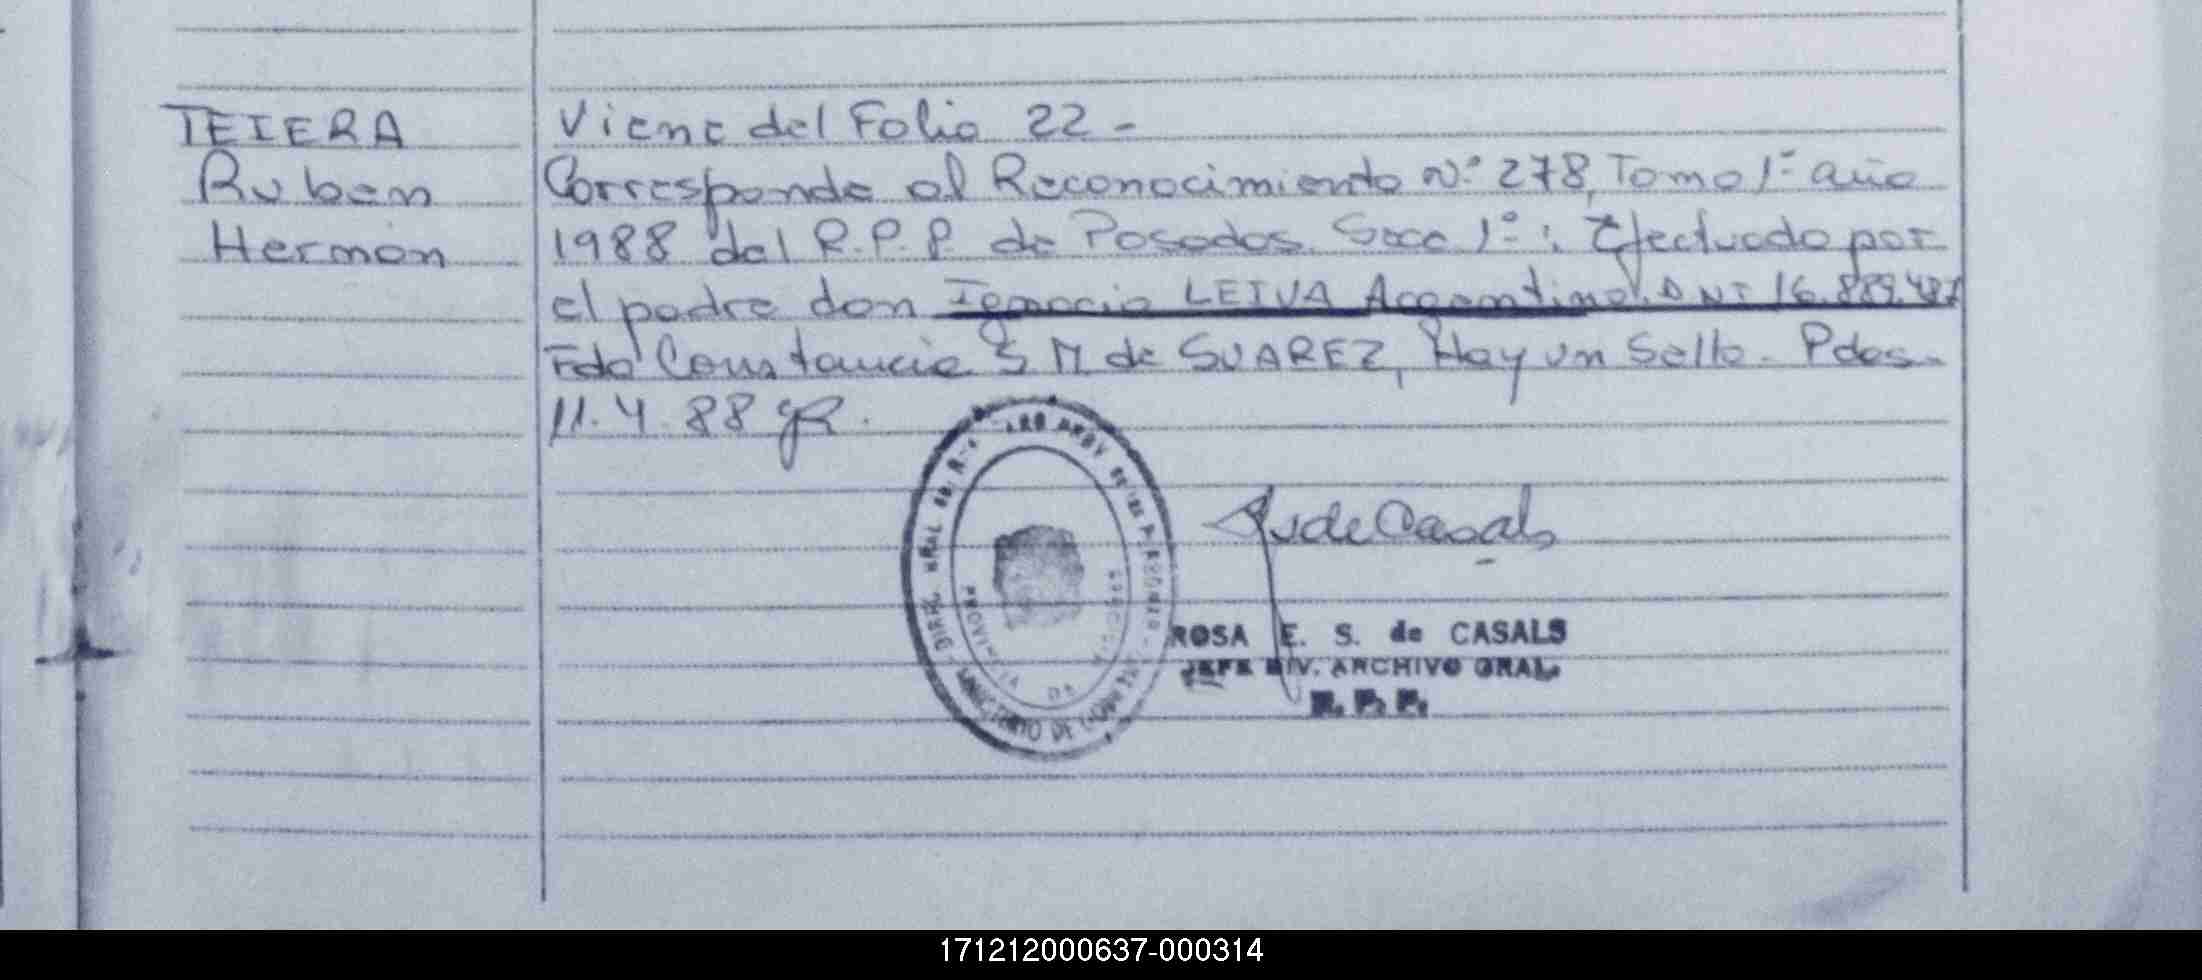 TEIERA
Ruben
Hernán
Viene del Folio 22 -
Corresponde al Reconocimiento Nº 278, Tomo 1º año
1988 del R.P.P. de Posadas. Secc 1º; Efectuado por
el padre don Ignacio LEIVA Argentino. DNI 16.889.
Fdo Constancia S M de SUAREZ, Hay un Sello. Pdas.
11.4.88
DIREC. GRAL. DEL DE LAS PERSONAS
MINISTERIO DE
PROVINCIA DE
ROSA E. S. de CASALS
JEFE DIV. ARCHIVO GRAL.
R. P. P.
171212000637-000314